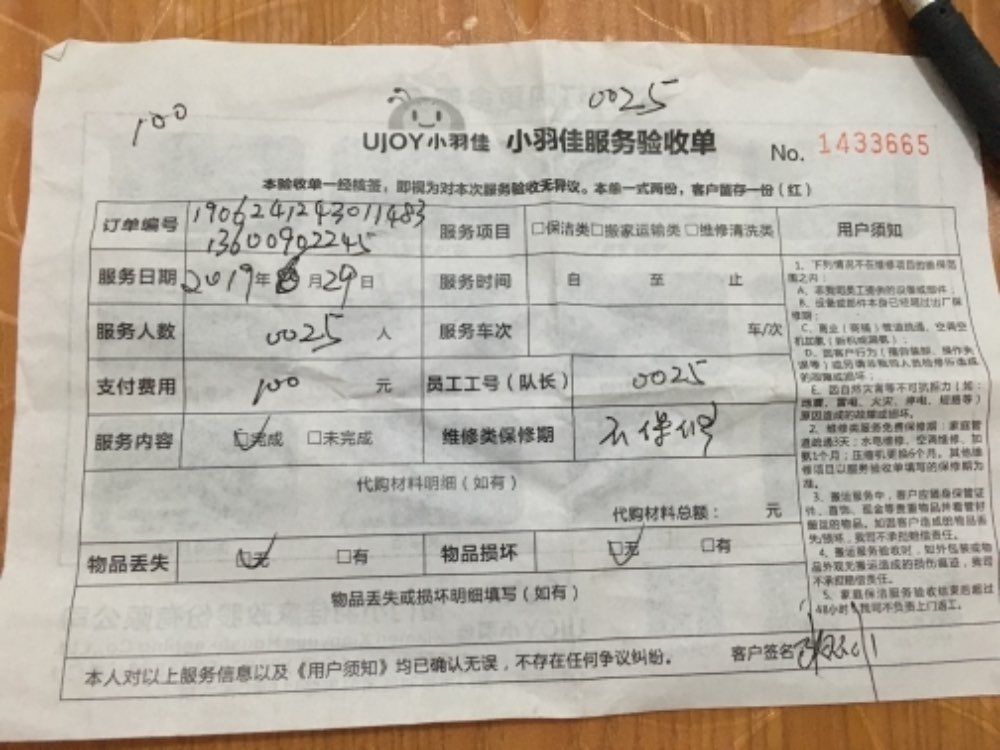 100
0025
UJOY小羽佳 小羽佳服务验收单 No. 1433665
本验收单一经核签，即视为对本次服务验收无异议。本单一式两份，客户留存一份（红）
订单编号 1906241243011483
13600902245
服务项目 □保洁类□搬家运输类□维修清洗类
用户须知
服务日期 2019年 月29日 服务时间 自 至 止
服务人数 0025 人 服务车次 车/次
支付费用 100 元 员工工号（队长） 0025
服务内容 ☑完成 □未完成 维修类保修期 不保修
代购材料明细（如有）
代购材料总额： 元
物品丢失 ☑无 □有 物品损坏 ☑无 □有
物品丢失或损坏明细填写（如有）
本人对以上服务信息以及《用户须知》均已确认无误，不存在任何争议纠纷。 客户签名
1、下列情况不在维修项目的质保范
围之内：
A、非我司员工提供的设备或部件；
B、设备或部件本身已经超过出厂保
修期；
C、商业（商铺）管道疏通、空调空
机加氨（新机或漏氨）；
D、因客户行为（擅自装卸、操作失
误等）
的故障或损坏；
E、因自然灾害等不可抗拒力（如：
地震、雷电、火灾、停电、短路等）
原因造成的故障或损坏。
2、维修类服务免费保修期：家庭管
道疏通3天；水电维修、空调维修、加
氨1个月；压缩机更换6个月。其他维
修项目以服务验收单填写的保修期为
准。
3、搬运服务中，客户应随身保管证
件、首饰、现金等贵重物品并看管好
搬运的物品。如因客户造成的物品丢
失/损坏，我司不承担赔偿责任。
4、搬运服务验收时，如外包装或物
品外观无搬运造成的损伤痕迹，我司
不承担赔偿责任。
5、家庭保洁服务验收结束后超过
48小时，我司不负责上门返工。